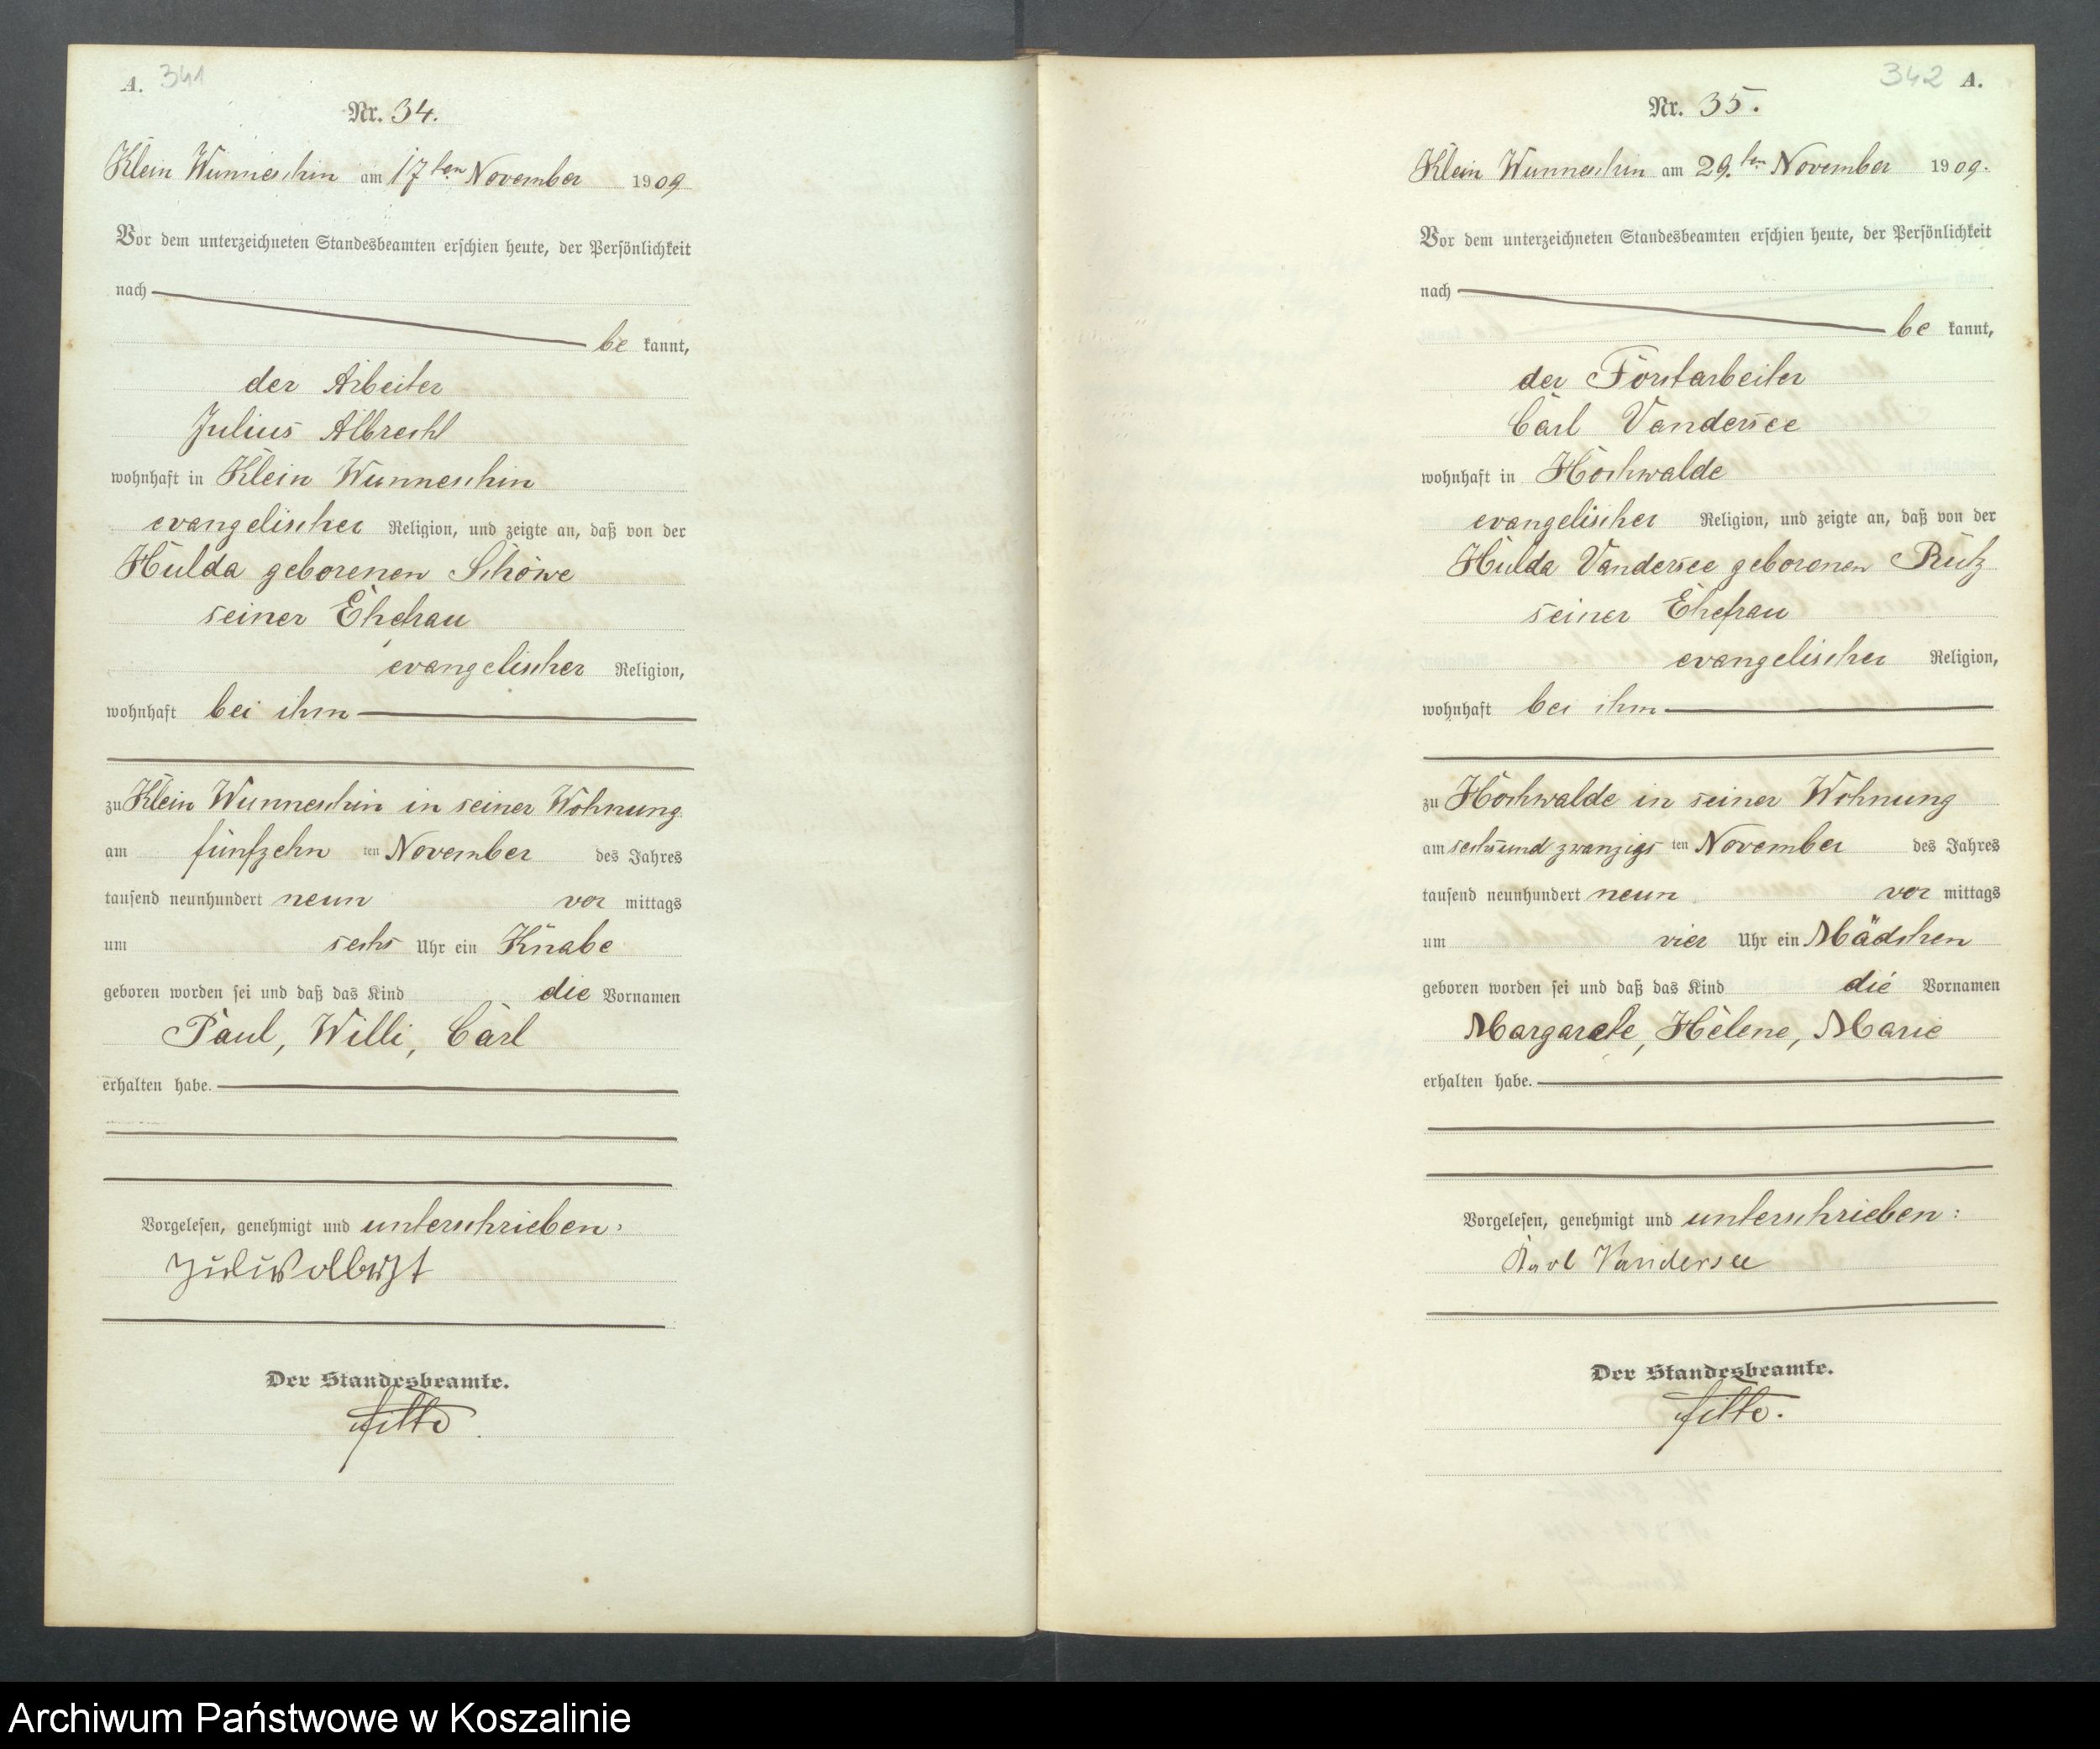 A. 341
Nr. 34.
Klein Wunneschin am 17ten November 1909
Vor dem unterzeichneten Standesbeamten erschien heute, der Persönlichkeit
nach
be kannt,
der Arbeiter
Julius Albrecht
wohnhaft in Klein Wunneschin
evangelischer Religion, und zeigte an, daß von der
Hulda geborenen Schöwe
seiner Ehefrau
evangelischer Religion,
wohnhaft bei ihm
zu Klein Wunneschin in seiner Wohnung
am fünfzehn ten November des Jahres
tausend neunhundert neun vor mittags
um sechs Uhr ein Knabe
geboren worden sei und daß das Kind die Vornamen
Paul, Willi, Carl
erhalten habe.
Vorgelesen, genehmigt und unterschrieben:
Der Standesbeamte.
342 A.
Nr. 35.
Klein Wunneschin am 29.ten November 1909.
Vor dem unterzeichneten Standesbeamten erschien heute, der Persönlichkeit
nach
be kannt,
der Forstarbeiter
Carl Vandersee
wohnhaft in Hochwalde
evangelischer Religion, und zeigte an, daß von der
Hulda Vandersee geborenen Rutz
seiner Ehefrau
evangelischer Religion,
wohnhaft bei ihm
zu Hochwalde in seiner Wohnung
am sechsundzwanzigs ten November des Jahres
tausend neunhundert neun vor mittags
um vier Uhr ein Mädchen
geboren worden sei und daß das Kind die Vornamen
Margarete, Helene, Marie
erhalten habe.
Vorgelesen, genehmigt und unterschrieben:
Karl Vandersee
Der Standesbeamte.
Archiwum Państwowe w Koszalinie